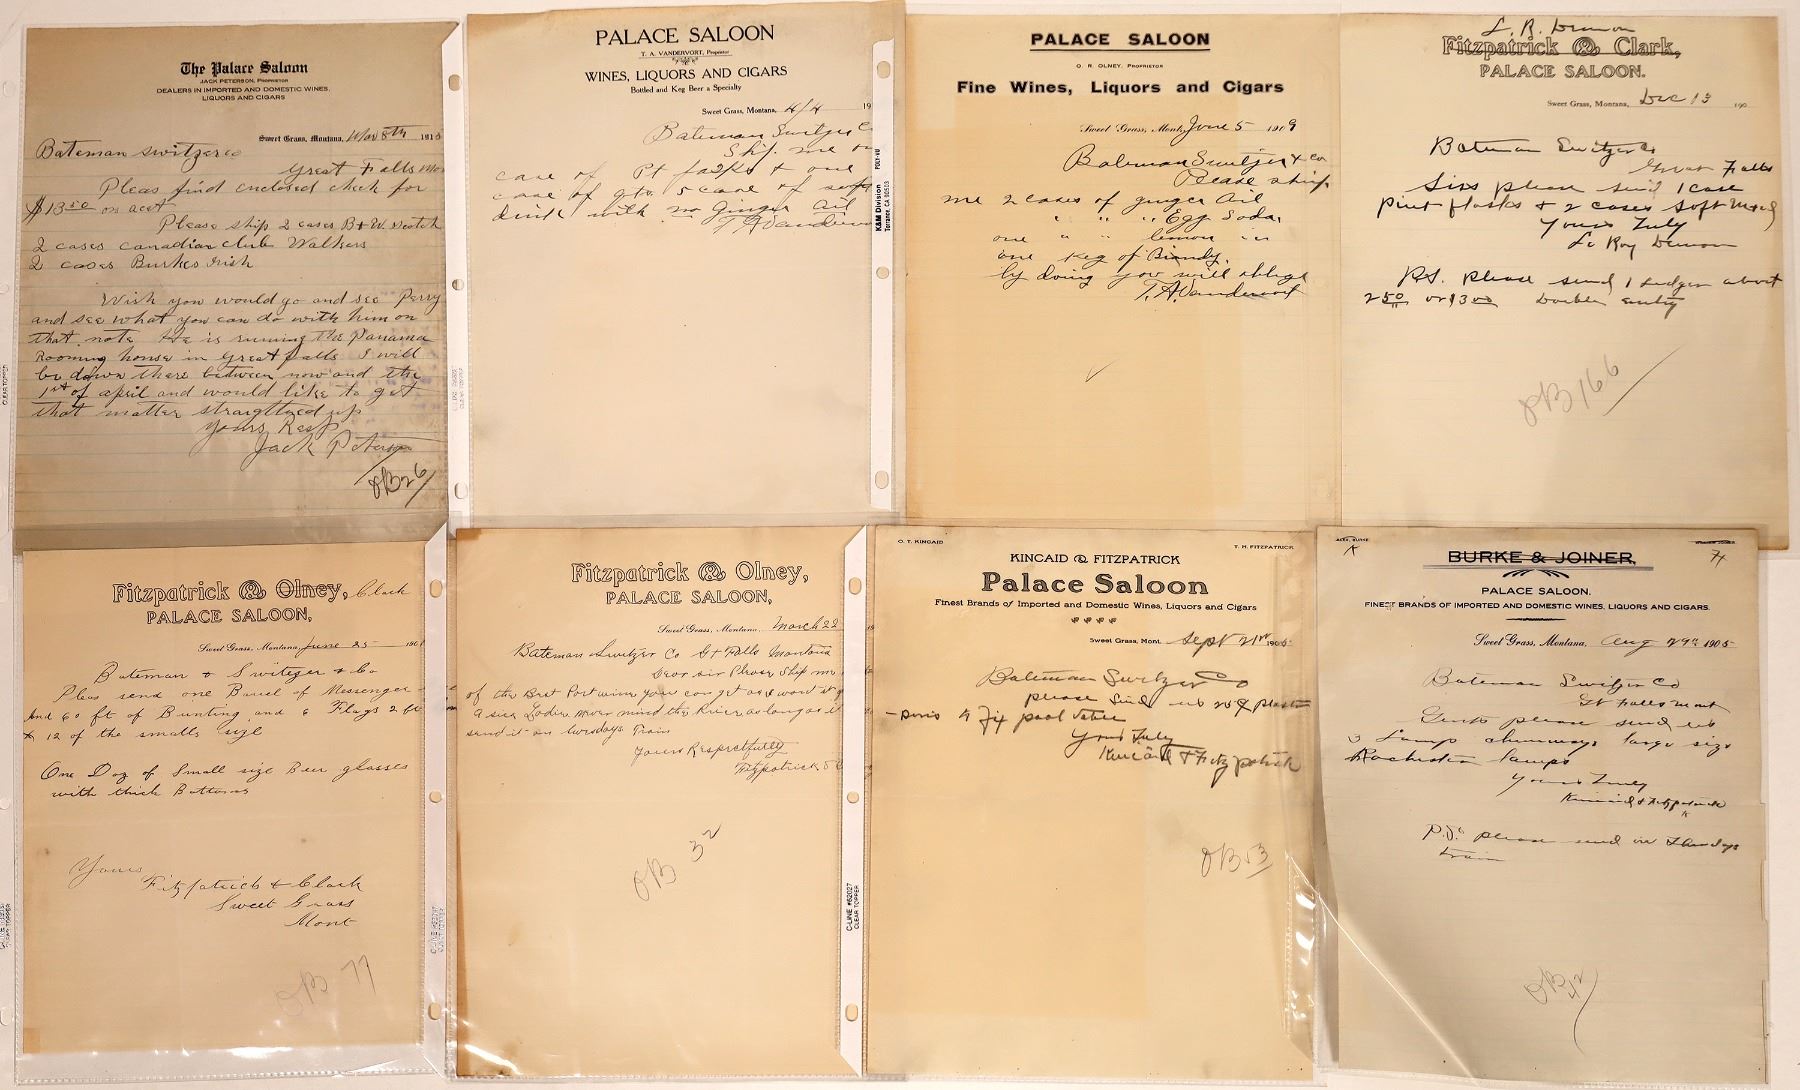 The Palace Saloon
JACK PETERSON, PROPRIETOR
DEALERS IN IMPORTED AND DOMESTIC WINES,
LIQUORS AND CIGARS
Sweet Grass, Montana, Mar 8th 191
Bateman Switzer Co
Great Falls Mo
Pleas find enclosed check for
$13 50 on acct
Please ship 2 cases B+W Scotch
2 cases Canadian Club Walkers
2 cases Burkes Irish
Wish you would go and see Perry
and see what you can do with him on
that note He is running the Panama
Rooming house in Great Falls I will
be down there between now and the
1st of april and would like to get
that matter up
Yours Resp
Jack Peterson
OB 26
PALACE SALOON
T. A. VANDERVORT, Proprietor
WINES, LIQUORS AND CIGARS
Bottled and Keg Beer a Specialty
Sweet Grass, Montana, 4/4 19
Bateman Switzer Co
Ship me on
case of Pt flasks + one
case of qts 5 case of soft
drink with no Ginger Ail
T A Vanderv
K&M Division
Torrance, CA 90503
POLY-VU
PALACE SALOON
O. R. OLNEY, PROPRIETOR
Fine Wines, Liquors and Cigars
Sweet Grass, Mont, June 5 1909
Bateman Switzer + Co
Please ship
me 2 cases of ginger Ail
" " " Egg Soda,
one " " lemon
one keg of Brandy.
by doing you will oblige
T. A Vandervort
L. R. Demon
Fitzpatrick & Clark,
PALACE SALOON.
Sweet Grass, Montana, Dec 13 190
Bateman Switzer Co
Great Falls
Sirs please send 1 case
pint flasks + 2 cases soft
Yours Truly
Le Roy Demon
P.S. please send 1 Ledger about
2 50 or $3 00 Double entry
OB 166
Fitzpatrick & Olney, Clark
PALACE SALOON,
Sweet Grass, Montana, June 25 190
Bateman & Switzger & Co
Pleas send one Barrel of Messenger
And 60 ft of Bunting and 6 Flags 2 ft
& 12 of the smalls size
One Doz of Small size Beer glasses
with thick Bottoms
Yours
Fitzpatrick & Clark
Sweet Grass
Mont
OB 77
Fitzpatrick & Olney,
PALACE SALOON,
Sweet Grass, Montana, March 22
Bateman Switzer Co Gt Falls Montana
Dear sir Please Ship me
of the Best Port wine you can get as I want it
A sick Ladie never mind the Price as long as
send it on tuesdays Train
Yours Respectfully
Fitzpatrick &
OB 32
C-LINE #62027
CLEAR TOPPER
O. T. KINCAID
T. H. FITZPATRICK
KINCAID & FITZPATRICK
Palace Saloon
Finest Brands of Imported and Domestic Wines, Liquors and Cigars
Sweet Grass, Mont. Sept 21 1905
Bateman Switzer Co
please send us
fix pool table
Yours Truly
Kincaid & Fitzpatrick
OB 53
ALEX. BURKE
BURKE & JOINER,
PALACE SALOON.
FINEST BRANDS OF IMPORTED AND DOMESTIC WINES, LIQUORS AND CIGARS.
Sweet Grass, Montana, Aug 29th 1905
Bateman Switzer Co
Gt Falls Mont
Gents please send us
3 Lamp chimneys large size
Rochester lamps
Yours Truly
Kincaid & Fitzpatrick
P.S. please send on
train
OB 42